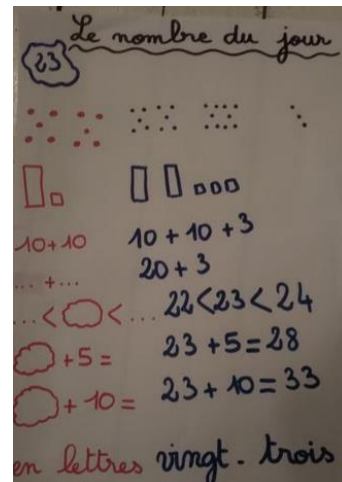 Le nombre du jour
23
10+10 10+10+3
... +... 20+3
...< <... 22<23<24
+5= 23+5=28
+10= 23+10=33
en lettres vingt-trois